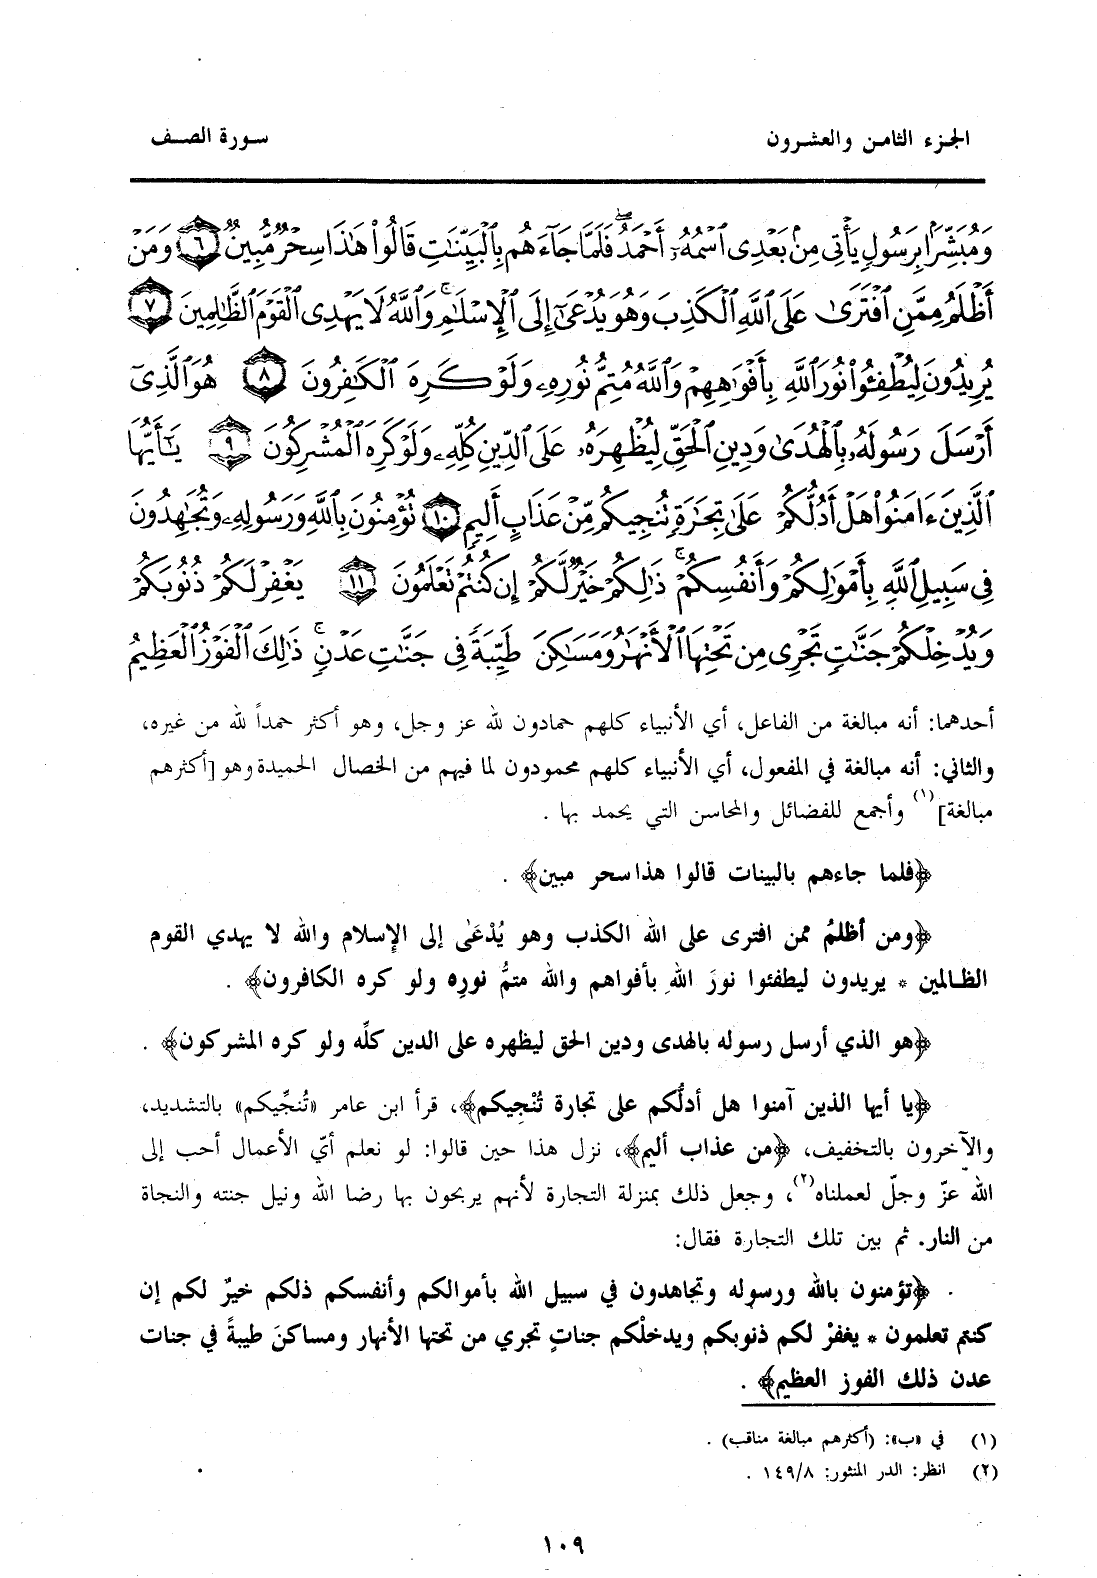 الجزء الثامن والعشرون
سورة الصف
وَمُبَشِّرًۢا بِرَسُولٍ يَأْتِى مِنۢ بَعْدِى ٱسْمُهُۥٓ أَحْمَدُ ۖ فَلَمَّا جَآءَهُم بِٱلْبَيِّنَٰتِ قَالُوا۟ هَٰذَا سِحْرٌ مُّبِينٌ ٦ وَمَنْ
أَظْلَمُ مِمَّنِ ٱفْتَرَىٰ عَلَى ٱللَّهِ ٱلْكَذِبَ وَهُوَ يُدْعَىٰٓ إِلَى ٱلْإِسْلَٰمِ ۚ وَٱللَّهُ لَا يَهْدِى ٱلْقَوْمَ ٱلظَّٰلِمِينَ ٧
يُرِيدُونَ لِيُطْفِـُٔوا۟ نُورَ ٱللَّهِ بِأَفْوَٰهِهِمْ وَٱللَّهُ مُتِمُّ نُورِهِۦ وَلَوْ كَرِهَ ٱلْكَٰفِرُونَ ٨ هُوَ ٱلَّذِىٓ
أَرْسَلَ رَسُولَهُۥ بِٱلْهُدَىٰ وَدِينِ ٱلْحَقِّ لِيُظْهِرَهُۥ عَلَى ٱلدِّينِ كُلِّهِۦ وَلَوْ كَرِهَ ٱلْمُشْرِكُونَ ٩ يَٰٓأَيُّهَا
ٱلَّذِينَ ءَامَنُوا۟ هَلْ أَدُلُّكُمْ عَلَىٰ تِجَٰرَةٍ تُنجِيكُم مِّنْ عَذَابٍ أَلِيمٍ ١٠ تُؤْمِنُونَ بِٱللَّهِ وَرَسُولِهِۦ وَتُجَٰهِدُونَ
فِى سَبِيلِ ٱللَّهِ بِأَمْوَٰلِكُمْ وَأَنفُسِكُمْ ۚ ذَٰلِكُمْ خَيْرٌ لَّكُمْ إِن كُنتُمْ تَعْلَمُونَ ١١ يَغْفِرْ لَكُمْ ذُنُوبَكُمْ
وَيُدْخِلْكُمْ جَنَّٰتٍ تَجْرِى مِن تَحْتِهَا ٱلْأَنْهَٰرُ وَمَسَٰكِنَ طَيِّبَةً فِى جَنَّٰتِ عَدْنٍ ۚ ذَٰلِكَ ٱلْفَوْزُ ٱلْعَظِيمُ
أحدهما: أنه مبالغة من الفاعل، أي الأنبياء كلهم حمادون لله عز وجل، وهو أكثر حمداً لله من غيره،
والثاني: أنه مبالغة في المفعول، أي الأنبياء كلهم محمودون لما فيهم من الخصال الحميدة وهو [أكثرهم
مبالغة](١) وأجمع للفضائل والمحاسن التي يحمد بها .
﴿فلما جاءهم بالبينات قالوا هذا سحر مبين﴾ .
﴿ومن أظلمُ ممن افترى على الله الكذب وهو يُدْعَىٰ إلى الإسلام والله لا يهدي القوم
الظالمين * يريدون ليطفئوا نورَ اللهِ بأفواهم والله متمُّ نورِه ولو كره الكافرون﴾ .
﴿هو الذي أرسل رسوله بالهدى ودين الحق ليظهره على الدين كلِّه ولو كره المشركون﴾ .
﴿يا أيها الذين آمنوا هل أدلُّكم على تجارة تُنْجِيكم﴾، قرأ ابن عامر «تُنجِّيكم» بالتشديد،
والآخرون بالتخفيف، ﴿من عذاب أليم﴾، نزل هذا حين قالوا: لو نعلم أيّ الأعمال أحب إلى
الله عزّ وجلّ لعملناه(٢)، وجعل ذلك بمنزلة التجارة لأنهم يربحون بها رضا الله ونيل جنته والنجاة
من النار. ثم بين تلك التجارة فقال:
﴿تؤمنون بالله ورسوله وتجاهدون في سبيل الله بأموالكم وأنفسكم ذلكم خيرٌ لكم إن
كنتم تعلمون * يغفرْ لكم ذنوبكم ويدخلْكم جناتٍ تجري من تحتها الأنهار ومساكنَ طيبةً في جنات
عدن ذلك الفوز العظيم﴾ .
(١) في «ب»: (أكثرهم مبالغة مناقب) .
(٢) انظر: الدر المنثور: ١٤٩/٨ .
١٠٩